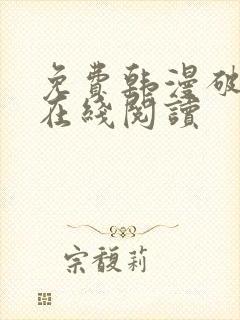 免費韩漫破
在綫閱讀
宗馥莉